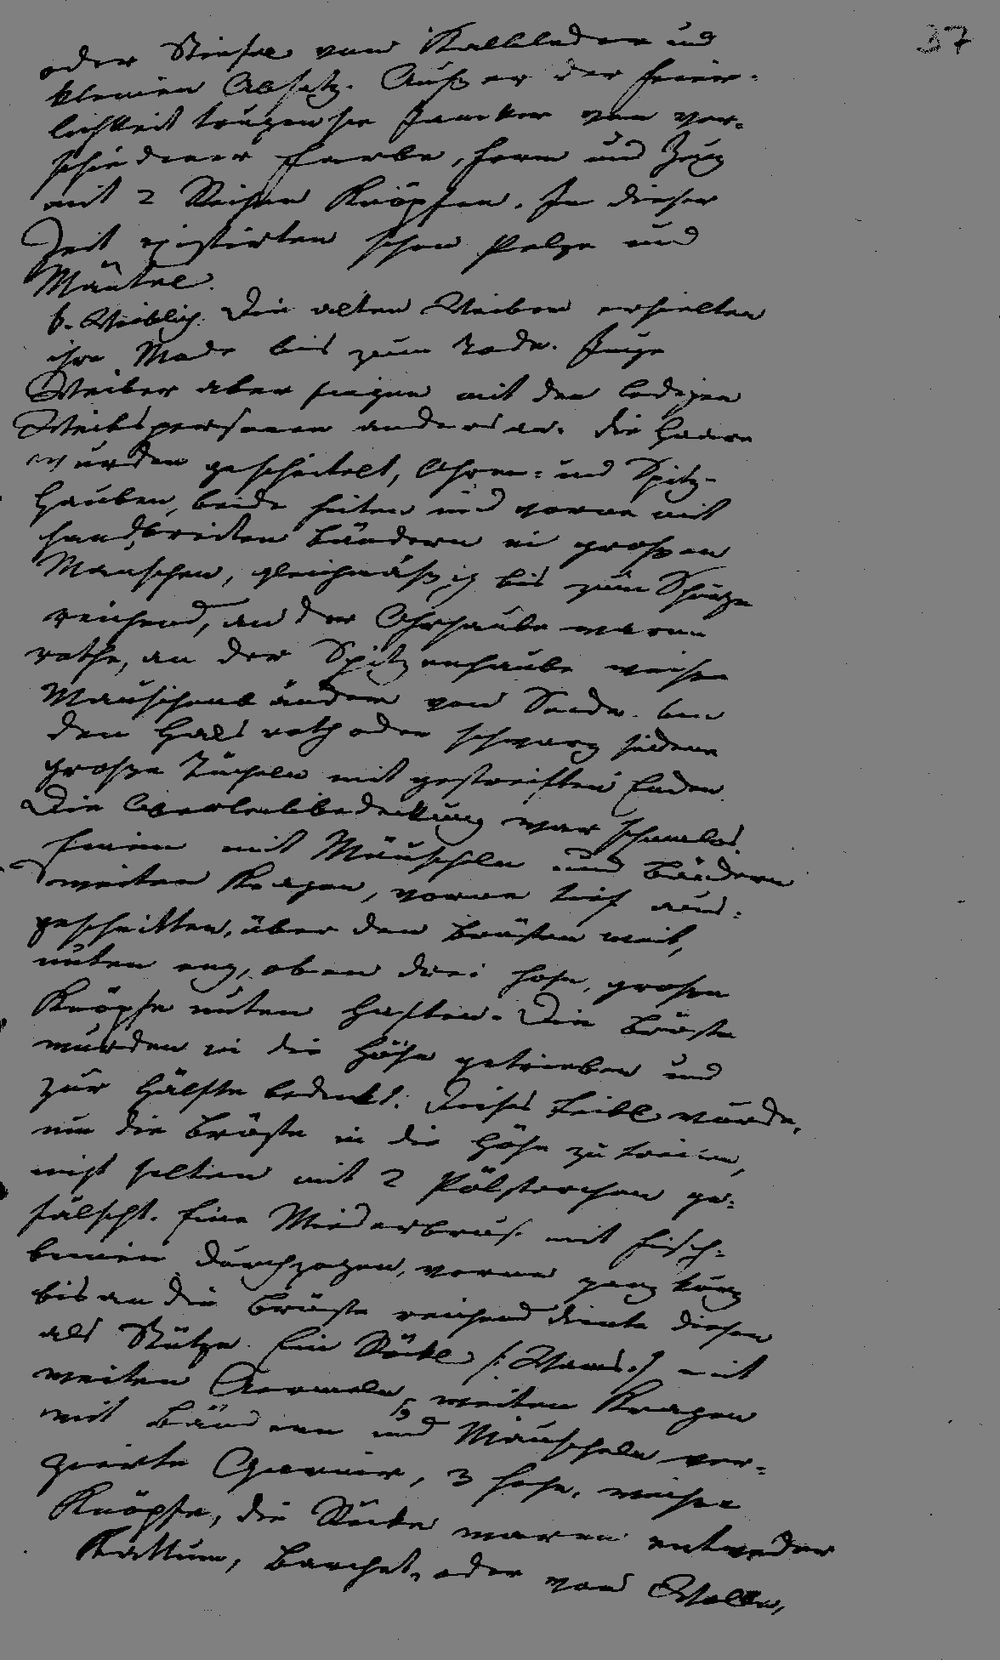 37
oder Stiefel von Kalbleder und
kleinen Absatz. Außer der Feier-
lichkeit trugen sie Janker von ver-
schiedener Farbe, Form und Zeug
mit 2 Reihen Knöpfen. In dieser
Zeit existirten schon Pelze und
Mäntel.
b. Weiblich. Die alten Weiber erhielten
ihre Mode bis zum Tode. Junge
Weiber aber fingen mit den ledigen
Weibspersonen anders an. Die Haare
wurden gescheitelt, Ohren- und Spitz-
hauben, beide Seiten und vorne mit
handbreiten Bändern in großen
Maschen, gleichmäßig bis zum
reichend, an der Ohrhaube waren
rothe, an der Spitzenhaube weiße
Mauschenbänder von Seide. Um
den Hals roth oder schwarz seidene
große Tücheln mit gestreiften Enden.
Die Oberleibbedeckung war schmalos.
Einen mit Mäuscheln und Bändern
weiten Kragen, vorne tief aus-
geschnitten, über den Brüsten weit,
unten eng, oben drei hohe, große
Knöpfe unten Haften. Die Brüste
wurden in die Höhe getrieben und
zur Hälfte bedeckt. Dieses Leibl wurde,
um die Brüste in die Höhe zu treiben,
nicht selten mit 2 Pölsterchen ge-
fälscht. Eine Miederbrust mit Fisch-
beinen durchzogen, vorne ganz kurz
bis an die Brüste reichend diente diesen
als Stütze. Ein Röckl /: Wams :/ mit
weiten Aermeln, weiten Kragen
mit Bändern und Mäuscheln ver-
zierte 3 hohe, weiße
Knöpfe, die Röcke waren entweder
Kattun, Barchet, oder von Wolle,